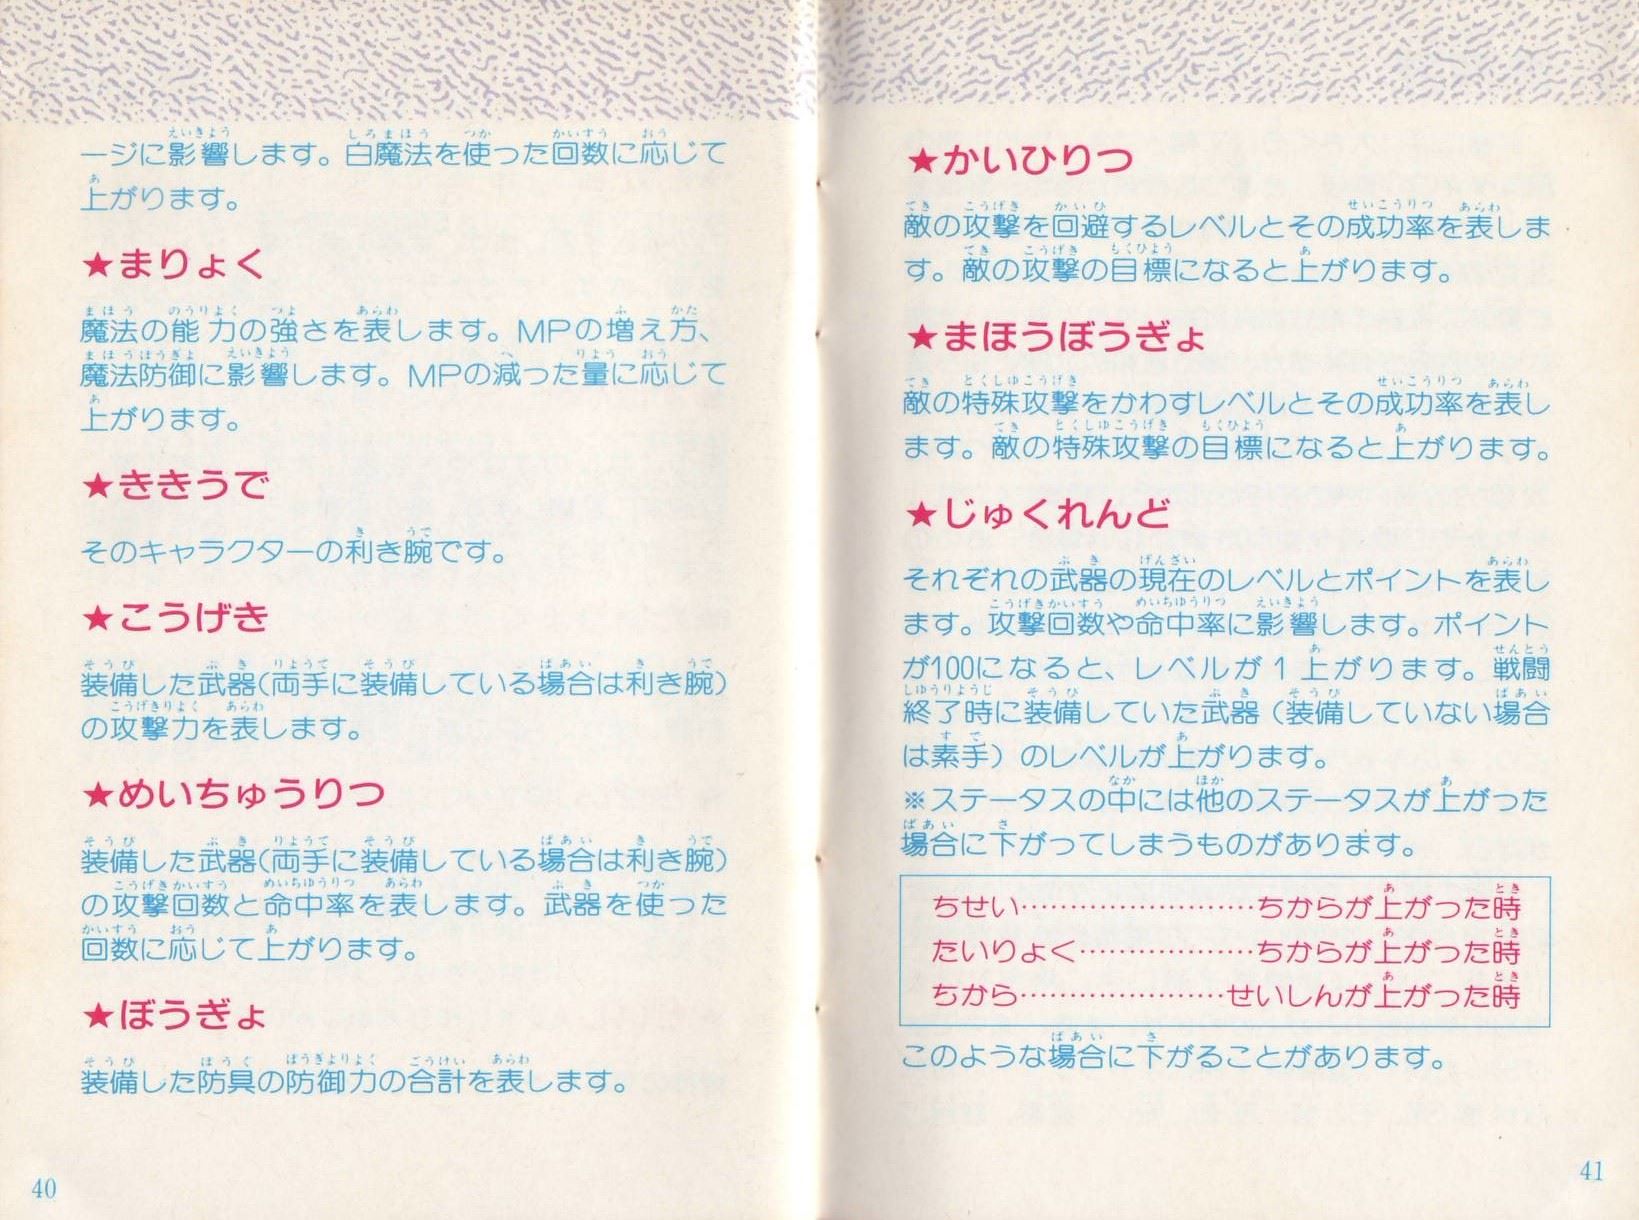 ージに影響します。白魔法を使った回数に応じて
上がります。
★まりょく
魔法の能力の強さを表します。MPの増え方、
魔法防御に影響します。MPの減った量に応じて
上がります。
★ききうで
そのキャラクターの利き腕です。
★こうげき
装備した武器(両手に装備している場合は利き腕)
の攻撃力を表します。
★めいちゅうりつ
装備した武器(両手に装備している場合は利き腕)
の攻撃回数と命中率を表します。武器を使った
回数に応じて上がります。
★ぼうぎょ
装備した防具の防御力の合計を表します。
40
★かいひりつ
敵の攻撃を回避するレベルとその成功率を表しま
す。敵の攻撃の目標になると上がります。
★まほうぼうぎょ
敵の特殊攻撃をかわすレベルとその成功率を表し
ます。敵の特殊攻撃の目標になると上がります。
★じゅくれんど
それぞれの武器の現在のレベルとポイントを表し
ます。攻撃回数や命中率に影響します。ポイント
が100になると、レベルが1上がります。戦闘
終了時に装備していた武器(装備していない場合
は素手)のレベルが上がります。
※ステータスの中には他のステータスが上がった
場合に下がってしまうものがあります。
ちせい……………………ちからが上がった時
たいりょく………………ちからが上がった時
ちから…………………せいしんが上がった時
このような場合に下がることがあります。
41